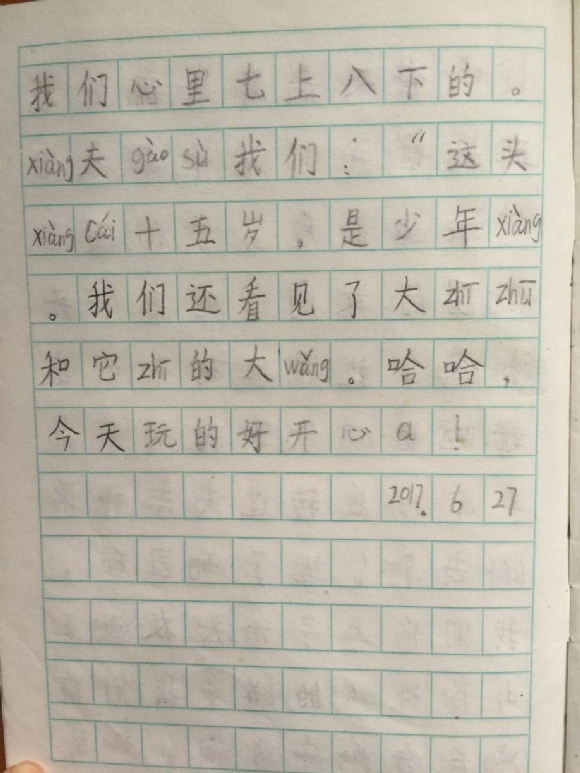 我们心里七上八下的。
xiàng夫gào sù我们：“这头
xiàng cái十五岁，是少年xiàng
。我们还看见了大zhī zhū
和它zhī的大wǎng。哈哈，
今天玩的好开心a！
2017.6 27